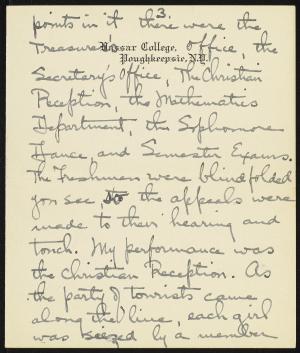 3.
points in it there were the
Vassar College,
Poughkeepsie, N.Y.
Treasurer's Office, the
Secretary's Office, The Christian
Reception, the Mathematics
Department, the Sophomore
Dance, and Semester Exams.
The Freshmen were blindfolded
you see, so the appeals were
made to their hearing and
touch. My performance was
the Christian Reception. As
the party of tourists came
along the line, each girl
was seized by a member